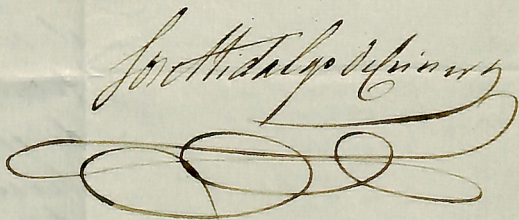 José Hidalgo de Cisneros